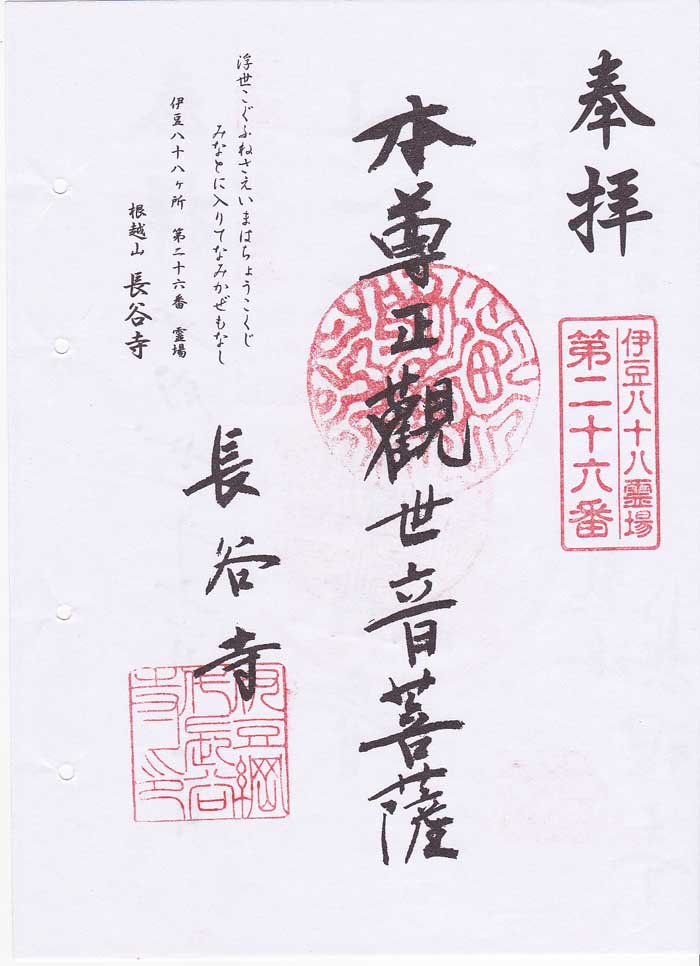 奉拝
伊豆八十八霊場
第二十六番
本尊正觀世音菩薩
浮世こぐふねさえいまはちょうこくじ
みなとに入りてなみかぜもなし
伊豆八十八ヶ所 第二十六番 霊場
根越山 長谷寺
長谷寺